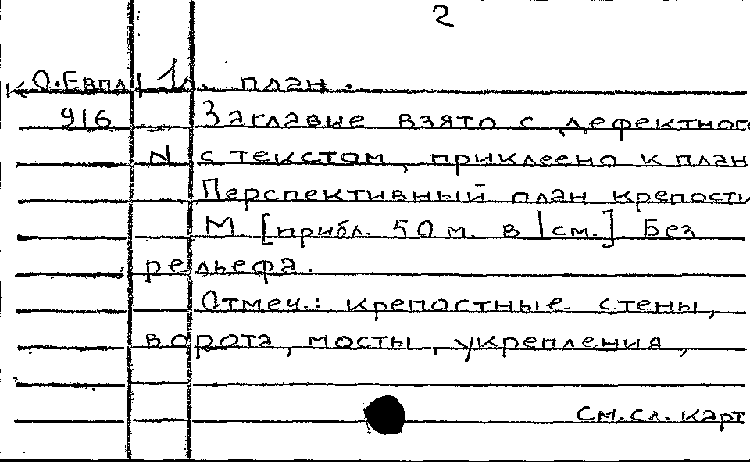 2
К О.Евпл 1л. план.
916 Заглавие взято с дефектног
N с текстом, приклеено к план
Перспективный план крепости
М. [прибл. 50 м. в 1 см.] Без
рельефа.
Отмеч.: крепостные стены,
ворота, мосты, укрепления,
см. сл. карт